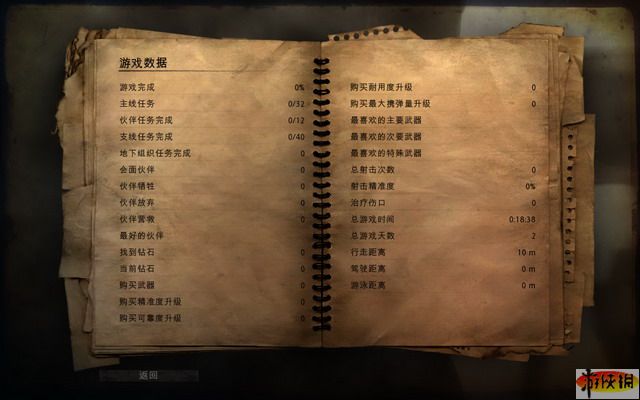 游戏数据
游戏完成 0%
主线任务 0/32
伙伴任务完成 0/12
支线任务完成 0/40
地下组织任务完成 0
会面伙伴 0
伙伴牺牲 0
伙伴放弃 0
伙伴营救 0
最好的伙伴
找到钻石 0
当前钻石 0
购买武器 0
购买精准度升级 0
购买可靠度升级 0
购买耐用度升级 0
购买最大携弹量升级 0
最喜欢的主要武器
最喜欢的次要武器
最喜欢的特殊武器
总射击次数 0
射击精准度 0%
治疗伤口 0
总游戏时间 0:18:38
总游戏天数 2
行走距离 10 m
驾驶距离 0 m
游泳距离 0 m
返回
游侠网